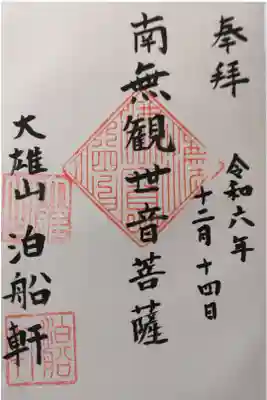 奉拝
令和六年
十二月十四日
南無観世音菩薩
大雄山
泊船軒
泊船